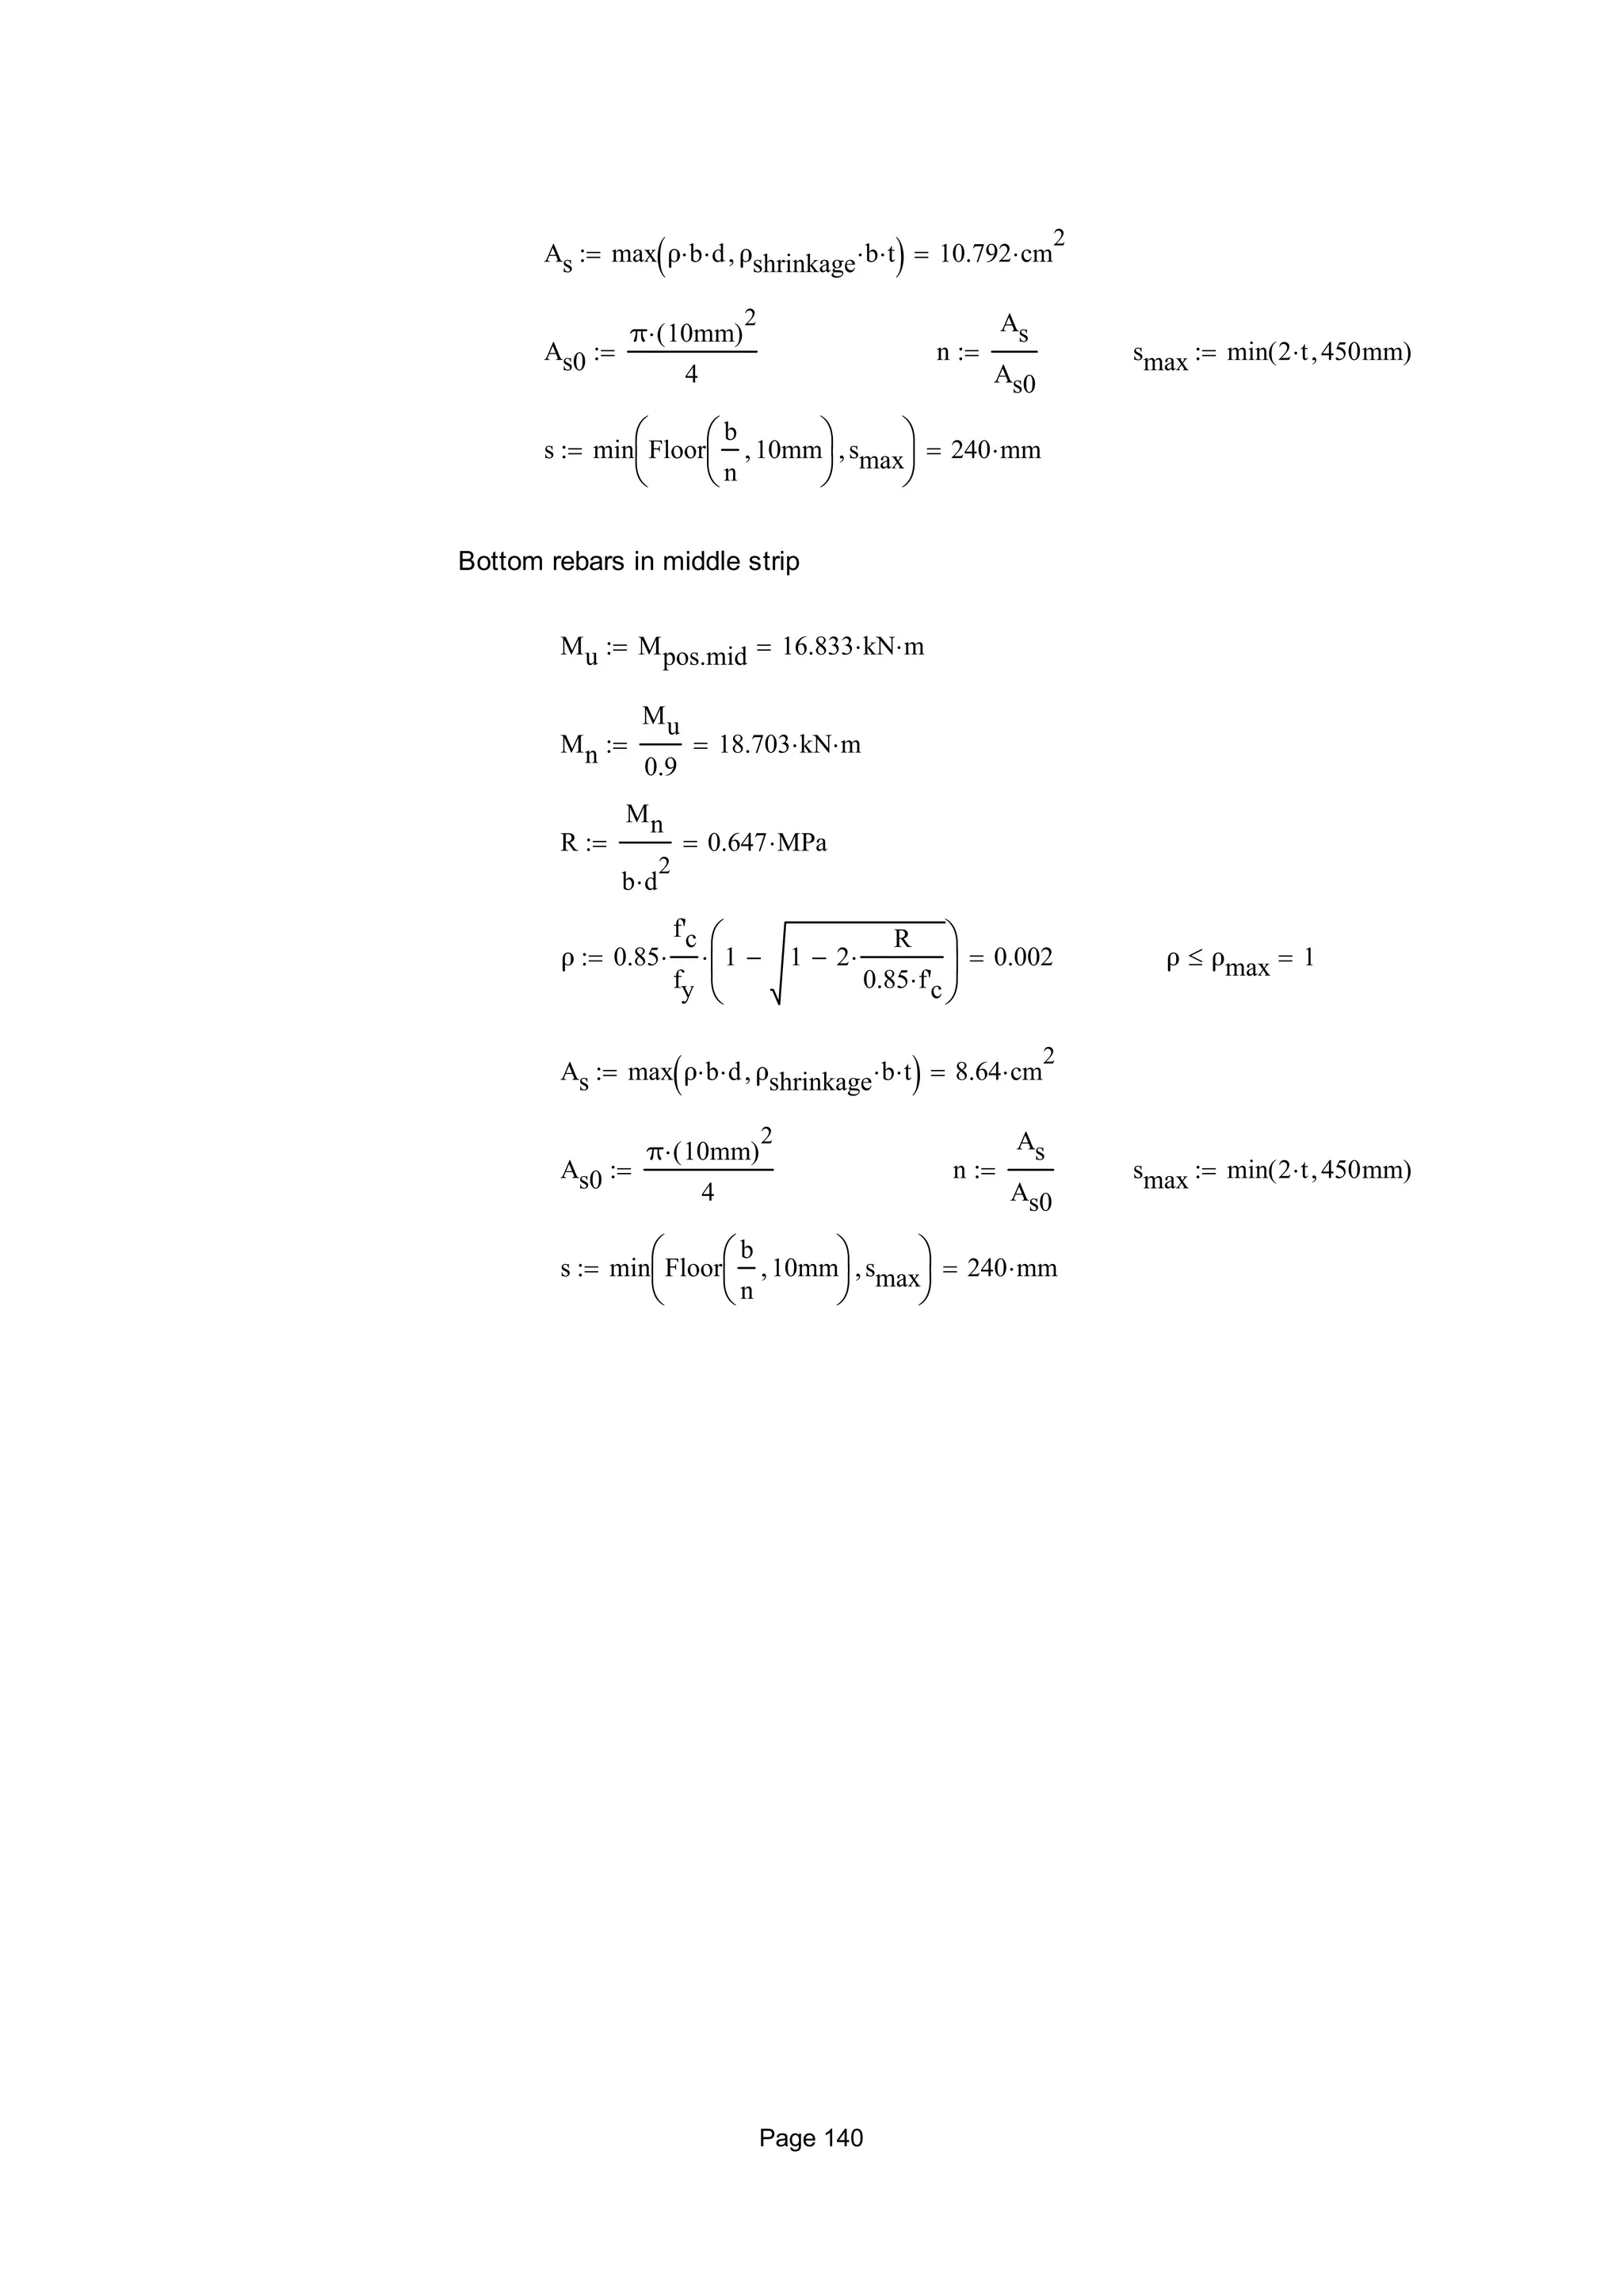 A_s := max(ρ·b·d, ρ_shrinkage·b·t) = 10.792·cm^2
A_s0 := π·(10mm)^2 / 4    n := A_s / A_s0    s_max := min(2·t, 450mm)
s := min(Floor(b/n, 10mm), s_max) = 240·mm
Bottom rebars in middle strip
M_u := M_pos.mid = 16.833·kN·m
M_n := M_u / 0.9 = 18.703·kN·m
R := M_n / b·d^2 = 0.647·MPa
ρ := 0.85·f'_c / f_y·(1 − √(1 − 2·R / 0.85·f'_c)) = 0.002    ρ ≤ ρ_max = 1
A_s := max(ρ·b·d, ρ_shrinkage·b·t) = 8.64·cm^2
A_s0 := π·(10mm)^2 / 4    n := A_s / A_s0    s_max := min(2·t, 450mm)
s := min(Floor(b/n, 10mm), s_max) = 240·mm
Page 140